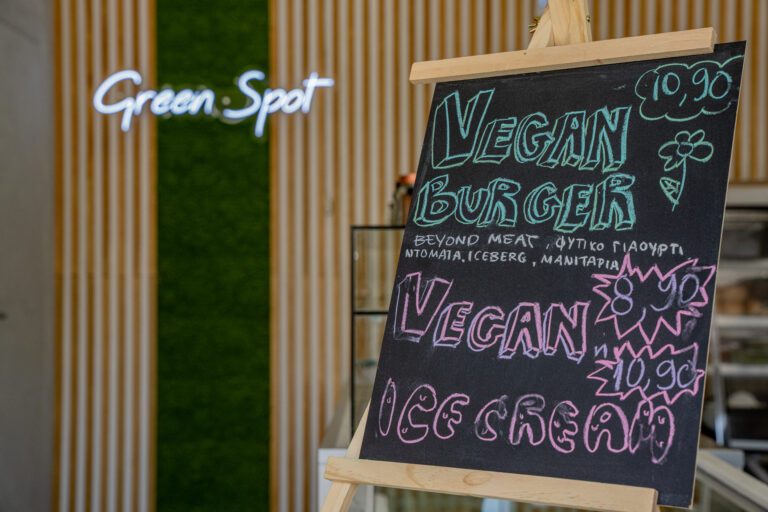 Green Spot
10,90
VEGAN
BURGER
BEYOND MEAT, ΦΥΤΙΚΟ ΓΙΑΟΥΡΤΙ
ΝΤΟΜΑΤΑ, ICEBERG, ΜΑΝΙΤΑΡΙΑ
VEGAN
8,90
η
10,90
ICE CREAM